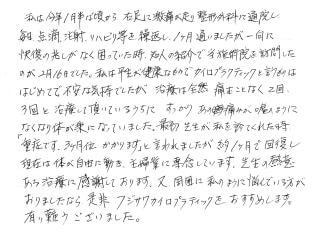 私は今年1月半ば頃から 右足に激痛が走り整形外科に通院し
毎日点滴、注射、リハビリ等を繰返し、1ヶ月通いましたが一向に
快復の兆しがなく困っていた時、知人の紹介で手治療院を訪問した
のが2月16日でした。私は平生が健康なのでカイロプラクティックと言うのは
はじめてで不安な気持でしたが 治療は全然 痛みことなく 2回、
3回と治療して頂いているうちに すっかり あの激痛が嘘のように
なくなり体が楽になっていました。最初 先生が私を診てくれた時
「重症です。3ヶ月位かかります。」と言われましたが約1ヶ月で回復し
現在は体が自由に動き、主婦業に専念しています。先生の熱意
ある治療に感謝しております。又 周囲に私のように悩んでいる方が
ありましたなら 是非 フジサワカイロプラクティックをおすすめします。
有り難うございました。